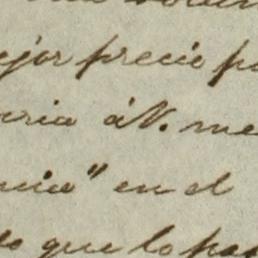 ejor precio p
ria á V. me
ncia" en el
lo que lo pa